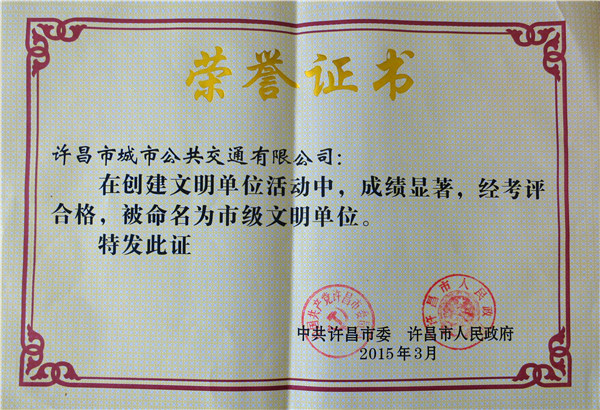 荣誉证书
许昌市城市公共交通有限公司：
在创建文明单位活动中，成绩显著，经考评
合格，被命名为市级文明单位。
特发此证
中国共产党许昌市委员会
许昌市人民政府
中共许昌市委 许昌市人民政府
2015年3月